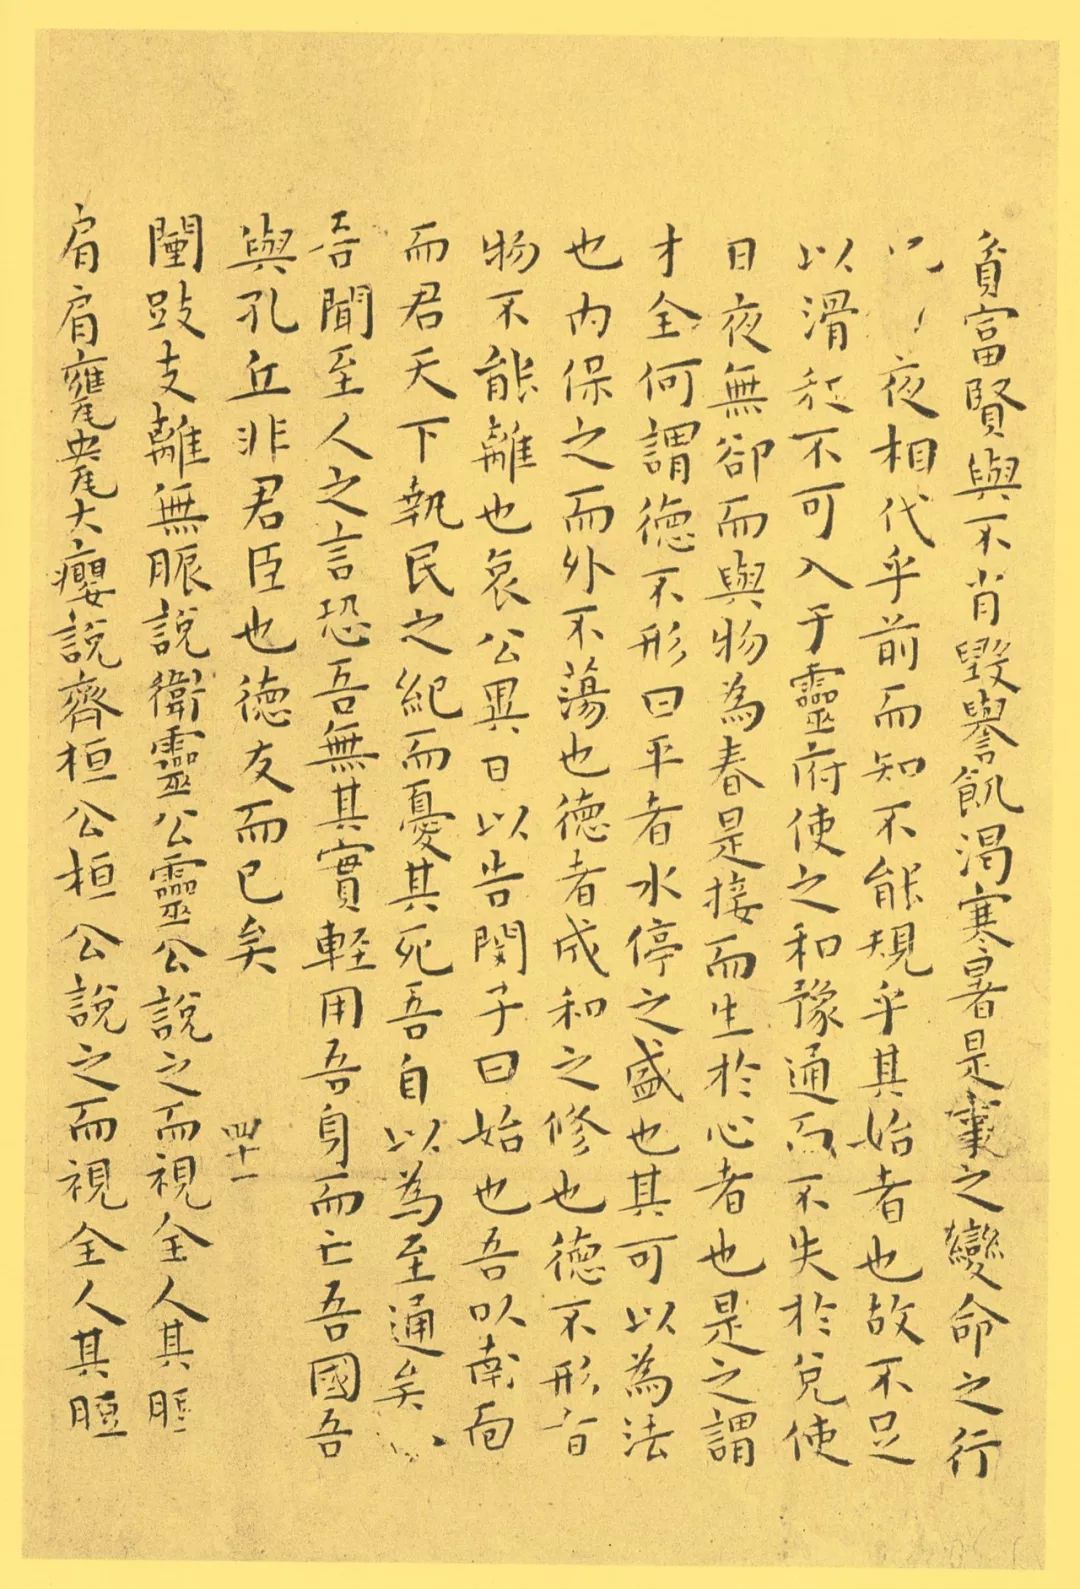 貧富賢與不肖毀譽飢渴寒暑是事之變命之行
夜相代乎前而知不能規乎其始者也故不足
以滑和不可入于靈府使之和豫通而不失於兌使
日夜無卻而與物為春是接而生於心者也是之謂
才全何謂德不形曰平者水停之盛也其可以為法
也內保之而外不蕩也德者成和之修也德不形者
物不能離也哀公異日以告閔子曰始也吾以南面
而君天下執民之紀而憂其死吾自以為至通矣
吾聞至人之言恐吾無其實輕用吾身而亡吾國吾
與孔丘非君臣也德友而已矣
四十一
闉跂支離無脤說衛靈公靈公說之而視全人其脰
肩肩甕㼜大癭說齊桓公桓公說之而視全人其脰